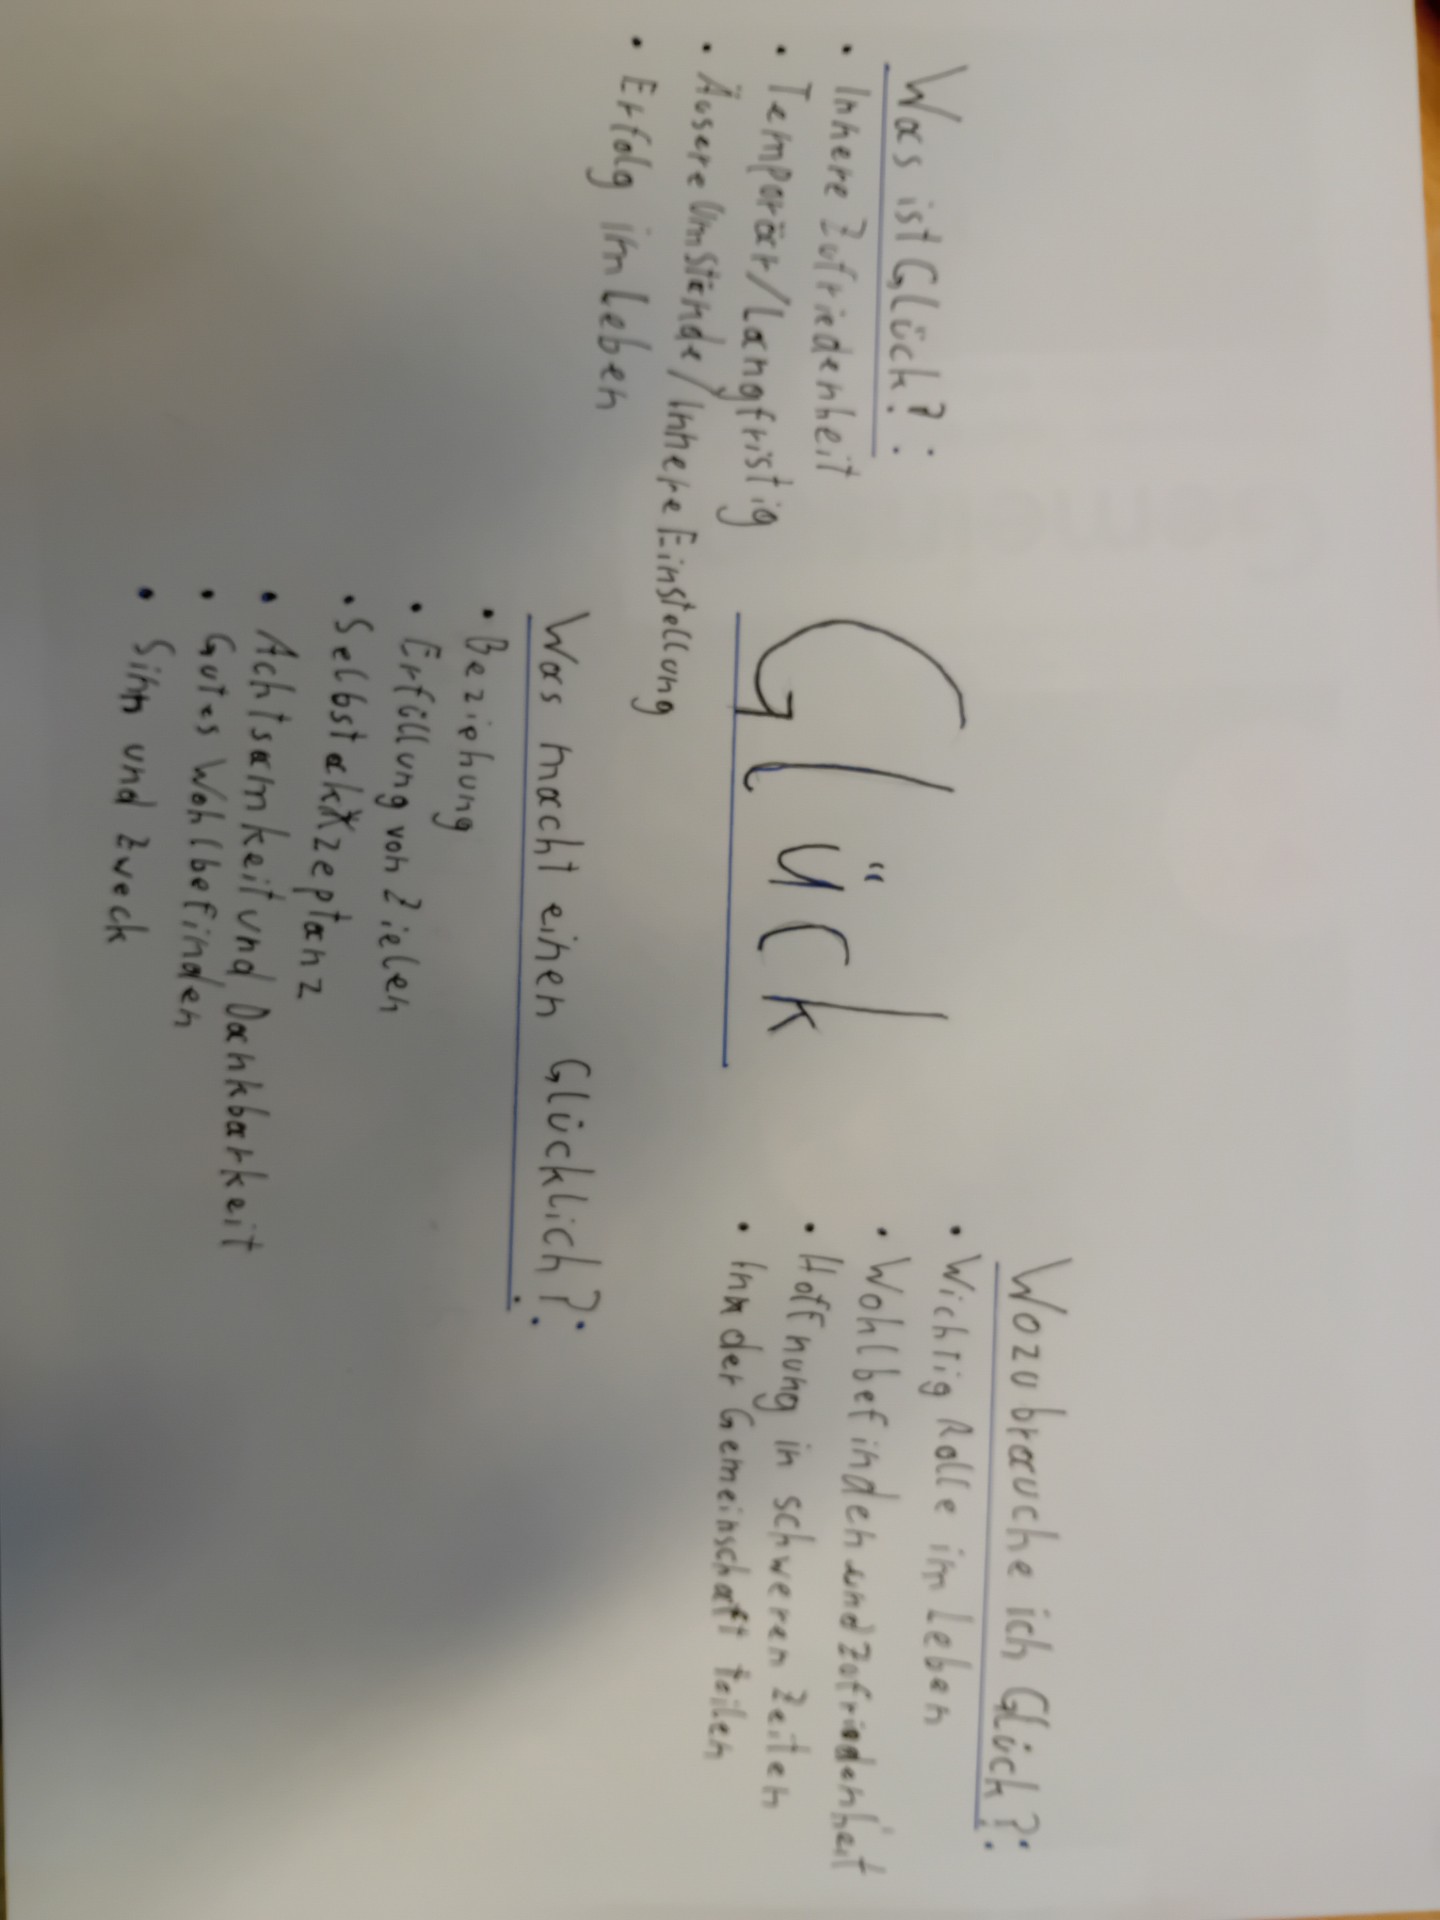 Was ist Glück?:
• Innere Zufriedenheit
• Temporär/Langfristig
• Äusere Umstände/Innere Einstellung
• Erfolg im Leben
Glück
Wozu brauche ich Glück?:
• Wichtig Rolle im Leben
• Wohlbefinden und Zufriedenheit
• Hoffnung in schweren Zeiten
• Inn der Gemeinschaft teilen
Was macht einen Glücklich?:
• Beziehung
• Erfüllung von Zielen
• Selbstakzeptanz
• Achtsamkeit und Dankbarkeit
• Gutes Wohlbefinden
• Sinn und Zweck